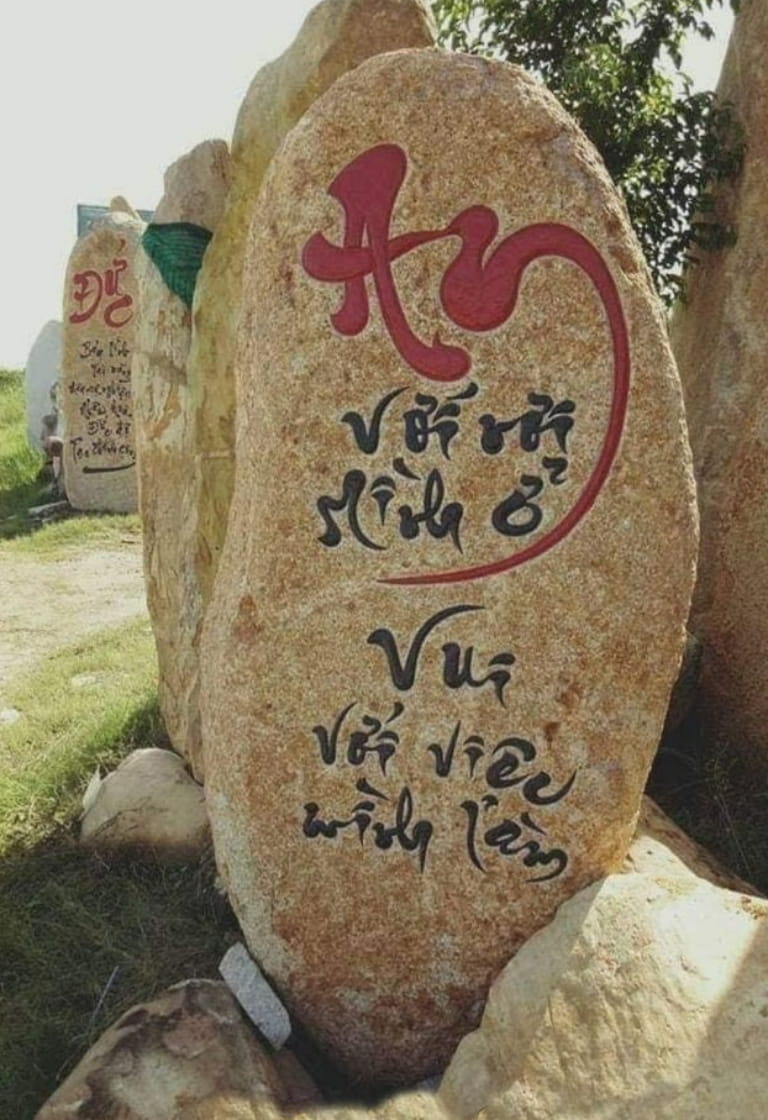 An
Với nơi
Mình ở
Vui
Với việc
mình làm
Đức
Tài năng